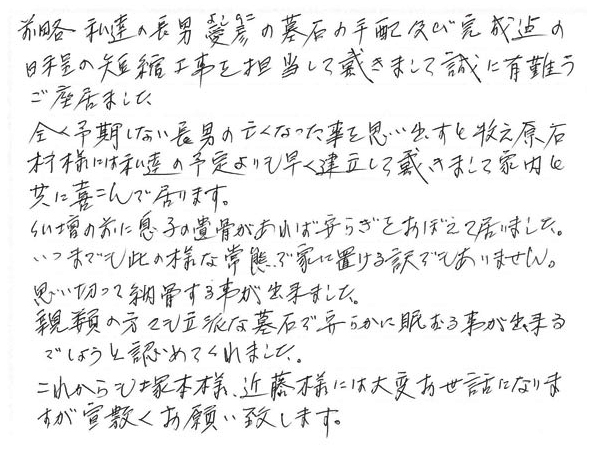 前略 私達の長男
の墓石の手配及び完成迄の
日程の短縮工事を担当して戴きまして誠に有難う
ご座居ました
全く予期しない長男の亡くなった事を思い出すと牧之原石
材様には私達の予定よりも早く建立して戴きまして家内と
共に喜こんで居ります。
仏壇の前に息子の遺骨があれば安らぎをおぼえて居りました。
いつまでも此の様な常態で家に置ける訳でもありません。
思い切って納骨する事が出来ました。
親類の方々も立派な墓石で安らかに眠むる事が出来る
でしょうと認めてくれました。
これからも塚本様、近藤様には大変お世話になりま
すが宜敷くお願い致します。